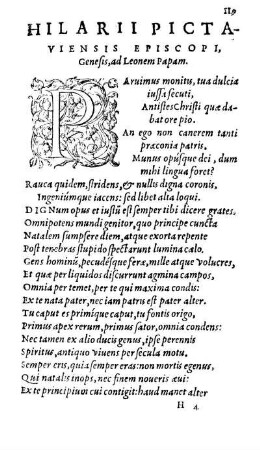 119
HILARII PICTA-
VIENSIS EPISCOPI,
Genesis, ad Leonem Papam.
PAruimus monitis, tua dulcia
iussa secuti,
Antistes Christi quæ da-
bat ore pio.
An ego non canerem tanti
præconia patris.
Munus opúsque dei, dum
mihi lingua foret?
Rauca quidem, stridens, & nullis digna coronis,
Ingeniúmque iacens: sed libet alta loqui.
DIGNum opus et iustū est semper tibi dicere grates,
Omnipotens mundi genitor, quo principe cuncta
Natalem sumpsere diem, atque exorta repente
Post tenebras stupido spectarunt lumina cælo.
Gens hominū, pecudésque feræ, mille atque volucres,
Et quæ per liquidos discurrunt agmina campos,
Omnia per temet, per te qui maxima condis:
Ex te nata pater, nec iam patris est pater alter.
Tu caput es primíque caput, tu fontis origo,
Primus apex rerum, primus sator, omnia condens:
Nec tamen ex alio ducis genus, ipse perennis
Spiritus, antiquo viuens per secula motu.
Semper eris, quia semper eras: non mortis egenus,
Qui natalis inops, nec finem noueris æui:
Ex te principium cui contigit: haud manet alter
H 4